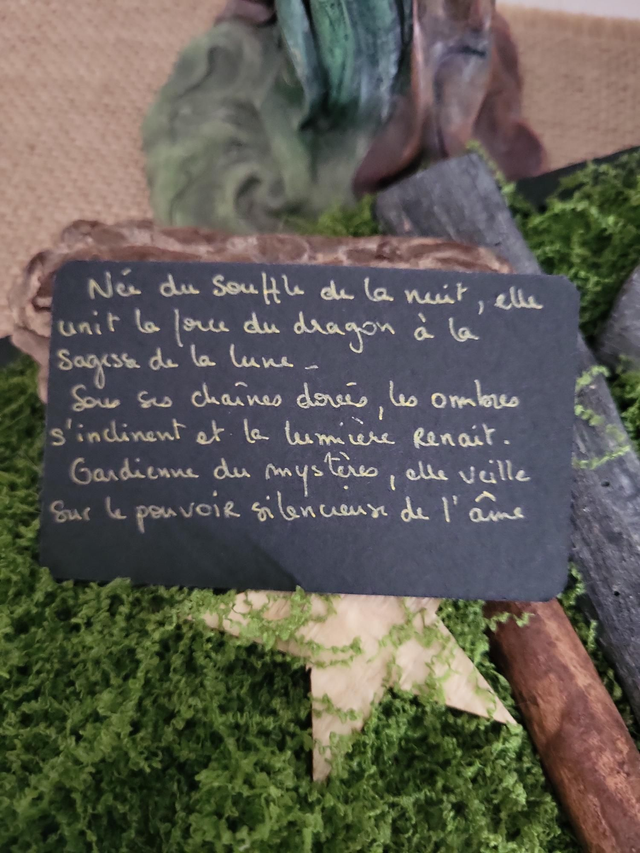 Née du souffle de la nuit, elle
unit la force du dragon à la
sagesse de la lune_
Sous ses chaînes dorées, les ombres
s'inclinent et la lumière Renait.
Gardienne du mystères, elle veille
sur le pouvoir silencieuse de l'âme